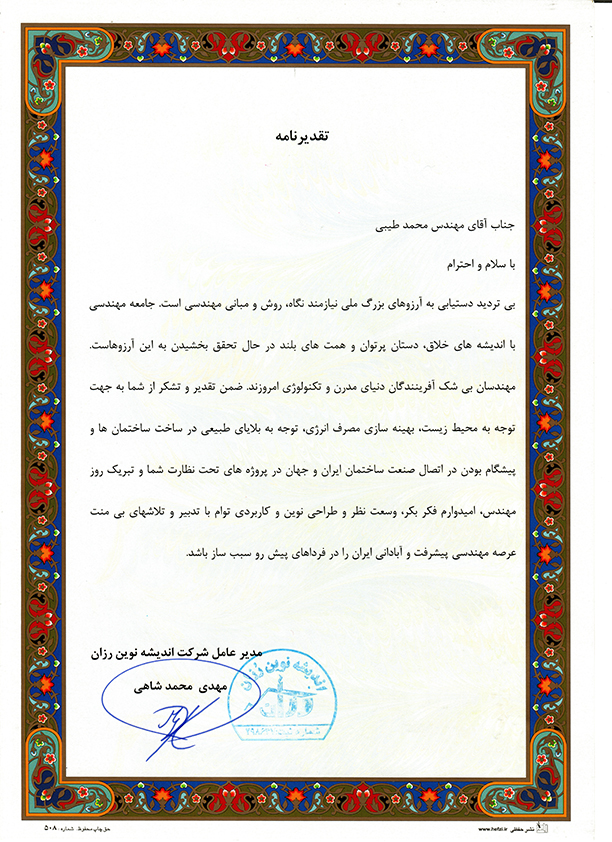 تقدیرنامه
جناب آقای مهندس محمد طیبی
با سلام و احترام
بی تردید دستیابی به آرزوهای بزرگ ملی نیازمند نگاه، روش و مبانی مهندسی است. جامعه مهندسی
با اندیشه های خلاق، دستان پرتوان و همت های بلند در حال تحقق بخشیدن به این آرزوهاست.
مهندسان بی شک آفرینندگان دنیای مدرن و تکنولوژی امروزند. ضمن تقدیر و تشکر از شما به جهت
توجه به محیط زیست، بهینه سازی مصرف انرژی، توجه به بلایای طبیعی در ساخت ساختمان ها و
پیشگام بودن در اتصال صنعت ساختمان ایران و جهان در پروژه های تحت نظارت شما و تبریک روز
مهندس، امیدوارم فکر بکر، وسعت نظر و طراحی نوین و کاربردی توام با تدبیر و تلاشهای بی منت
عرصه مهندسی پیشرفت و آبادانی ایران را در فرداهای پیش رو سبب ساز باشد.
مدیر عامل شرکت اندیشه نوین رزان
مهدی محمد شاهی
اندیشه نوین رزان
رزان
شماره ثبت:
نشر حفظی www.hefzi.ir
حق چاپ محفوظ. شماره: ۵۰۸